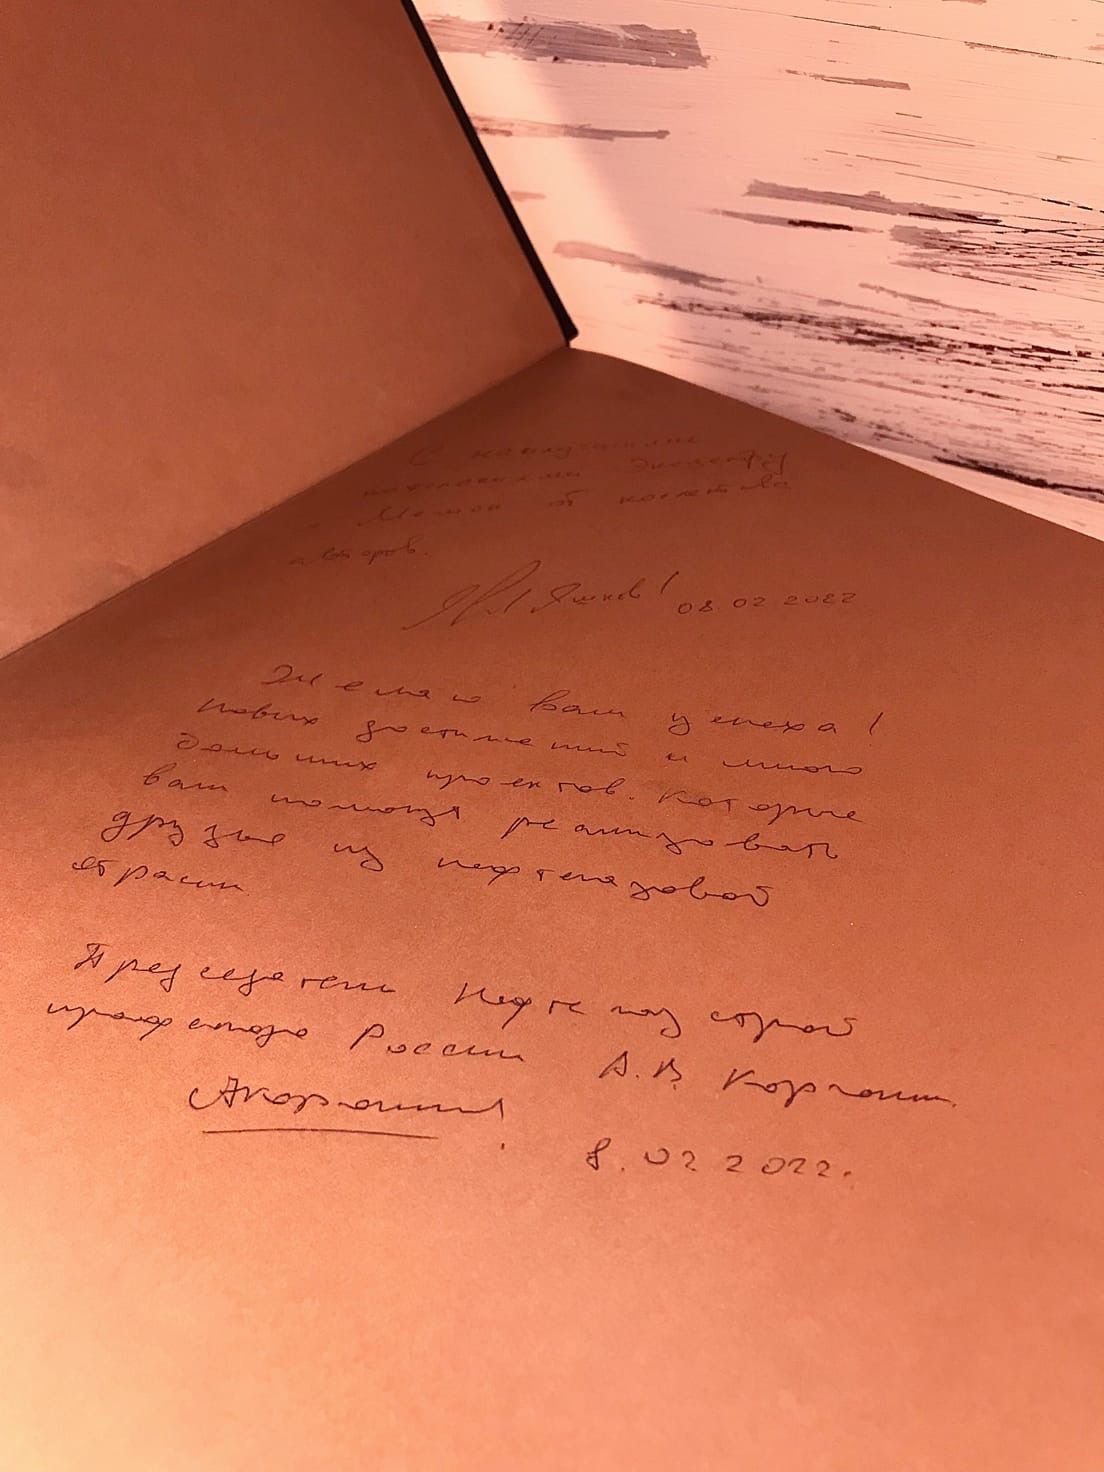 С наилучшими
пожеланиями
и от коллектива
авторов.
08.02.2022
Желаю вам успеха!
Новых достижений и много
больших проектов. Которые
вам помогут реализовать
друзья из нефтегазовой
отрасли.
Председатель Нефтегазстрой
профсоюза России А.В. Корчагин.
8.02.2022.